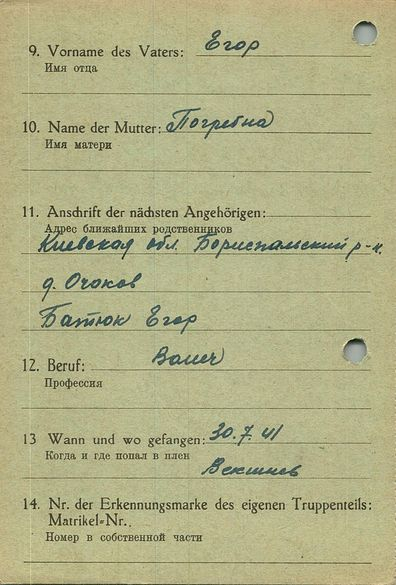 9. Vorname des Vaters: Егор
Имя отца
10. Name der Mutter: Погребна
Имя матери
11. Anschrift der nächsten Angehörigen:
Адрес ближайших родственников
Киевская обл. Бориспальский р-н.
д. Очоков
Батюк Егор
12. Beruf: Bauer
Профессия
13 Wann und wo gefangen: 30.7.41
Когда и где попал в плен
14. Nr. der Erkennungsmarke des eigenen Truppenteils:
Matrikel=Nr.
Номер в собственной части